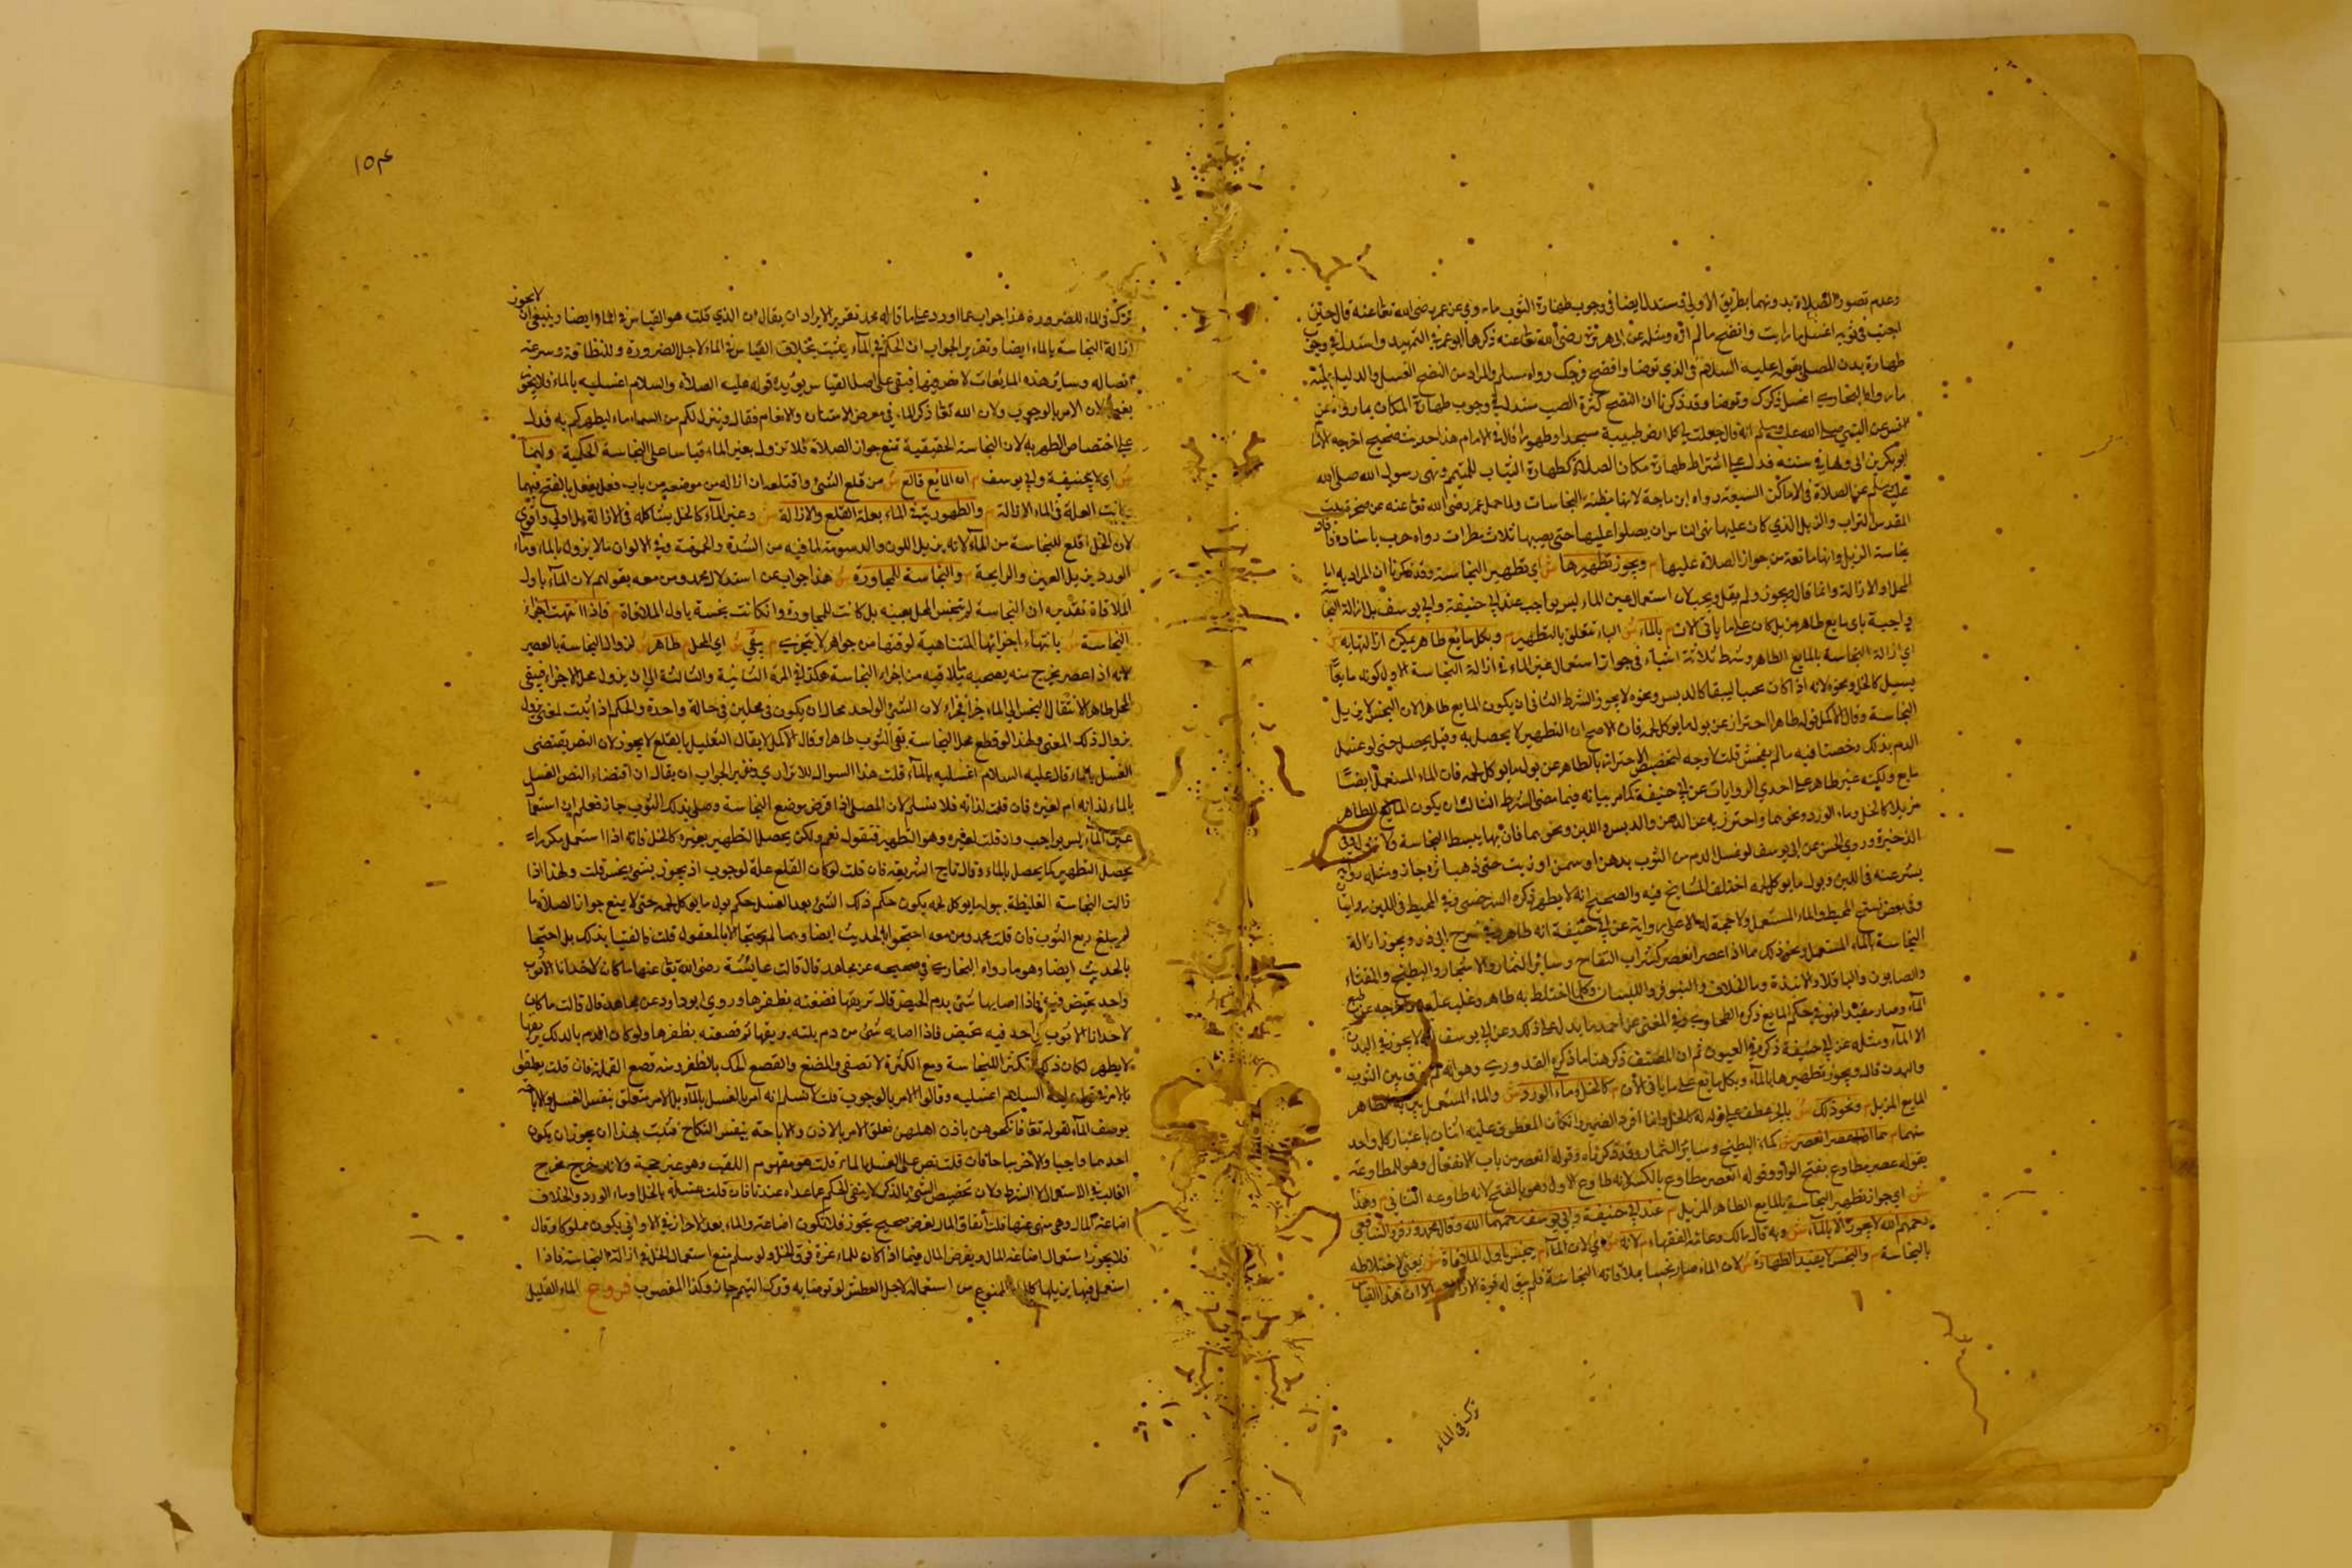 وعدم تصور الصلاة بدونهما بطريق الاولى فستدل ايضا في وجوب طهارة الثوب ما روى عن عمر رضى الله تعا عنه قال حين
اجنب في ثوبه اغسل ما رايت وانضح مالم اره ومثله عن ابى هريرة رضى الله تعا عنه ذكرها ابو عمر في التمهيد واستدل في وجوب
طهارة بدن المصلى بقوله عليه السلام في الذي توضا وانضح فرجك رواه مسلم والمراد من النضح الغسل والدليل عليه
ما رواه البخاري اغسل ذكرك وتوضا وقد ذكرنا ان النضح كثرة الصب ستدل في وجوب طهارة المكان بما روى عن
انس عن النبي صلى الله عليه وسلم انه قال جعلت لي كل ارض طيبة مسجدا وطهورا قال في الامام هذا حديث صحيح اخرجه الامام
ابو بكر بن في سننه فدل على اشتراط طهارة مكان الصلاة كطهارة الثياب للمتيمم ونهى رسول الله صلى الله
عليه وسلم عن الصلاة في الاماكن السبعة رواه ابن ماجة لانها مظنة النجاسات ولما حمل عمر رضى الله تعا عنه عن صخرة بيت
المقدس التراب والزبل الذي كان عليها نهى الناس ان يصلوا عليها حتى يصيبها ثلاث مطرات رواه حرب باسناده فأفاد
نجاسة الزبل وانها مانعة من جواز الصلاة عليها م ويجوز تطهيرها ش اي تطهير النجاسة وقد ذكرنا ان المراد به اما
المحل او الازالة وانما قال ويجوز ولم يقل ويجب لان استعمال عين الماء ليس بواجب عند ابي حنيفة وابي يوسف بل ازالة النجاسة
واجبة باى مايع طاهر مزيل كان على ما ياتي الان م بالماء ش الباء تتعلق بالتطهير م وبكل مايع طاهر يمكن ازالتها به ش
اي ازالة النجاسة بالمايع الطاهر وشرط ثلاثة اشياء في جواز استعمال غير الماء في ازالة النجاسة الاول كونه مايعا
يسيل كالخل ونحوه لانه اذا كان كالدبس ونحوه لا يجوز الشرط الثاني ان يكون المايع طاهرا لان النجس لا يزيل
النجاسة وقال الاكمل قوله طاهرا احتراز عن بول ما يوكل لحمه فان الاصح ان التطهير لا يحصل به وقيل يحصل حتى لو غسل
الدم بذلك رخصنا فيه مالم يفحش قلت لا وجه لتخصيص الاحتراز بالطاهر عن بول ما يوكل لحمه فان الماء المستعمل ايضا
مايع ولكنه غير طاهر على احدى الروايات عن ابي حنيفة كما مر بيانه فيما مضى الشرط الثالث ان يكون المايع الطاهر
مزيلا كالخل وماء الورد ونحوهما واحترز به عن الدهن والدبس واللبن ونحوهما فان بها يبسط النجاسة ولا تزول وفي
الذخيرة وروى الحسن عن ابى يوسف لو غسل الدم من الثوب بدهن او سمن او زيت حتى ذهب اثره جاز ومثله رواية
بشر عنه في اللبن وبول ما يوكل لحمه اختلف المشايخ فيه والصحيح انه لا يطهر ذكره السرخسى وفي المحيط في اللبن روايتان
وفي بعض نسخ المحيط والماء المستعمل ولا حجة له الا على رواية عن ابي حنيفة انه طاهر وفي شرح ابى ذر ويجوز ازالة
النجاسة بالماء المستعمل ونحو ذلك مما اذا عصر انعصر كشراب التفاح وسائر الثمار والاشجار والبطيخ والقثاء
والصابون والباقلاء والانبذة وماء الخلاف وكلما اختلط به طاهر وغلب عليه واخرجه عن طبع
الماء وصار مقيدا فهو في حكم المايع ذكره الطحاوي وفي المغنى عن احمد ما يدل على ذلك وعن ابي يوسف انه لا يجوز في البدن
الا الماء ومثله عن ابي حنيفة ذكره في العيون ثم ان المصنف ذكر هنا ما ذكره القدوري وهو انه لم يفرق بين الثوب
والبدن قال ويجوز تطهيرها بالماء وبكل مايع على ما ياتي الان م كالخل وماء الورد ش والماء المستعمل بين به الطاهر
المايع المزيل م ونحو ذلك ش بالجر عطف على قوله كالخل وانما افرد الضمير وان كان المعطوف عليه اثنان باعتبار كل واحد
منهما م مما اذا عصر انعصر ش كماء البطيخ وسائر الثمار وقد ذكرناه وقوله انعصر من باب الانفعال وهو للمطاوعة
بقوله عصر مطاوع بفتح الواو وقوله انعصر مطاوع بالكسر لانه طاوع الاول وهو بالفتح لانه طاوعه الثاني م وهذا
ش اي جواز تطهير النجاسة بالمايع الطاهر المزيل م عند ابي حنيفة وابي يوسف رحمهما الله وقال محمد وزفر والشافعى
رحمهم الله لا يجوز الا بالماء ش وبه قال مالك وعامة الفقهاء م لانه ش اي لان الماء م يتنجس باول الملاقاة ش يعني لاختلاطه
بالنجاسة م والنجس لا يفيد الطهارة ش لان الماء صار نجسا بملاقاته النجاسة فلم يبق له قوة الازالة م الا ان هذا القياس
ترك في الماء
١٥٤
ترك في الماء للضرورة هذا جواب عما اورد على ما قاله محمد تقرير الايراد ان يقال ان الذي قلته هو القياس في الماء ايضا وينبغي ان لا يجوز
ازالة النجاسة بالماء ايضا وتقرير الجواب ان الحكم في الماء يثبت بخلاف القياس في الماء لاجل الضرورة وللنظافة وسرعة
اتصاله وسائر هذه المايعات لا ضرورة فيها فبقى على اصل القياس يؤيده قوله عليه الصلاة والسلام اغسليه بالماء فلا يجوز
بغيره لان الامر بالوجوب ولان الله تعا ذكر الماء في معرض الامتنان والانعام فقال وينزل لكم من السماء ماء ليطهركم به فدل
على اختصاص الطهر به لان النجاسة الحقيقية تمنع جواز الصلاة فلا تزول بغير الماء قياسا على النجاسة الحكمية م ولهما
ش اي لابي حنيفة وابي يوسف م ان المايع قالع ش من قلع الشئ واقتلعه ان ازاله من موضعه من باب فعل يفعل بالفتح فيهما
كانت العلة في الماء الازالة م والطهورية في الماء بعلة القلع والازالة ش وغير الماء كالخل يشاكله في الازالة بل اولى واقوى
لان الخل اقلع للنجاسة من الماء لانه يزيل اللون والدسومة لما فيه من الشدة والحموضة وفي الالوان مالا يزول بالماء وماء
الورد يزيل العين والرايحة م والنجاسة للمجاورة ش هذا جواب عن استدلال محمد ومن معه بقولهم لان الماء باول
الملاقاة تقديره ان النجاسة لم تنجس المحل بعينه بل كانت للمجاورة وان كانت نجسة باول الملاقاة م فاذا انتهت اجزاء
النجاسة ش بانتهاء اجزائها المتناهية لوقتها من جواهر لا تتجزى م يبقى ش اي المحل م طاهرا ش لزوال النجاسة بالعصر
لانه اذا عصر يخرج منه بعصره ما يلاقيه من اجزاء النجاسة هكذا في المرة الثانية والثالثة الى ان يزول عمل الاجزاء فيبقى
المحل طاهرا لانتقال النجس الى الماء جزأ فجزأ لان الشئ الواحد محال ان يكون في محلين في حالة واحدة والحكم اذا ثبت لمعنى يزول
بزوال ذلك المعنى ولهذا لو قطع محل النجاسة بقى الثوب طاهرا وقال الاكمل لا يقال التعليل بالقلع لا يجوز لان النص يقتضى
الغسل بالماء قال عليه السلام اغسليه بالماء قلت هذا السوال للاترازي وتقرير الجواب ان يقال ان اقتضاء النص الغسل
بالماء لذاته ام لغيره فان قلت لذاته فلا نسلم لان المصلى اذا قرض موضع النجاسة وصلى بذلك الثوب جاز فعلم ان استعمال
عين الماء ليس بواجب وان قلت لغيره وهو التطهير فنقول نعم ولكن يحصل التطهير بغيره كالخل فانه اذا استعمل مكررا
يحصل التطهير كما يحصل بالماء وقال تاج الشريعة فان قلت لو كان القلع علة لوجوب اذ يجوز بشئ نجس قلت ولهذا اذا
زالت النجاسة الغليظة ببول ما يوكل لحمه يكون حكم ذلك الشئ بعد الغسل حكم بول ما يوكل لحمه حتى لا يمنع جواز الصلاة ما
لم يبلغ ربع الثوب فان قلت محمد ومن معه احتجوا بالحديث ايضا وهما لم يحتجا الا بالمعقول قلت ما اكتفيا بذلك بل احتجا
بالحديث ايضا وهو ما رواه البخاري في صحيحه عن مجاهد قال قالت عائشة رضى الله تعا عنها ما كان لاحدانا الا ثوب
واحد تحيض فيه فاذا اصابها شئ بدم الحيض قال بريقها فمصعته بظفرها وروى ابو داود عن مجاهد قال قالت ما كان
لاحدانا الا ثوب واحد فيه تحيض فاذا اصابه شئ من دم بلته بريقها ثم قصعته بظفرها ولو كان الدم بالدلك بريقها
لا يطهر لكان ذلك تكثيرا للنجاسة ومع الكثرة لا تصفى والمصع والقصع الدلك بالظفر ومنه قصع القملة فان قلت يتعلق
بالامر في قوله عليه السلام اغسليه وقالوا الامر بالوجوب قلت لا نسلم انه امر بالغسل بالماء بل الامر يتعلق بنفس الغسل والاباحة
يوصف الماء لقوله تعا فانكحوهن باذن اهلهن تعلق الامر بالاذن والاباحة بنفس النكاح فثبت بهذا ان يجوز ان يكون
احدهما واجبا والاخر مباحا فان قلت نص على الغسل بالماء قلت هو مفهوم اللقب وهو غير حجة ولانه خرج مخرج
الغالب في الاستعمال لا الشرط ولان تخصيص الشئ بالذكر لا ينفى الحكم عما عداه عندنا فان قلت غسله بالخل او ماء الورد والخلاف
اضاعة للمال وهى منهى عنها قلت انفاق المال لغرض صحيح يجوز فلا تكون اضاعة والماء بعد الاحراز في الاوانى يكون مملوكا وقال
فلا يجوز استعمال اضاعة المال ويفرض المال فيما اذا كان للماء عزة فوق الخل ولو سلم منع استعمال الخل في ازالة النجاسة فاذا
استعمل فيها يزيلها كالماء الممنوع من استعماله لاجل العطش لو توضا به وترك التيمم جاز وكذا المغصوب فروع الماء القليل